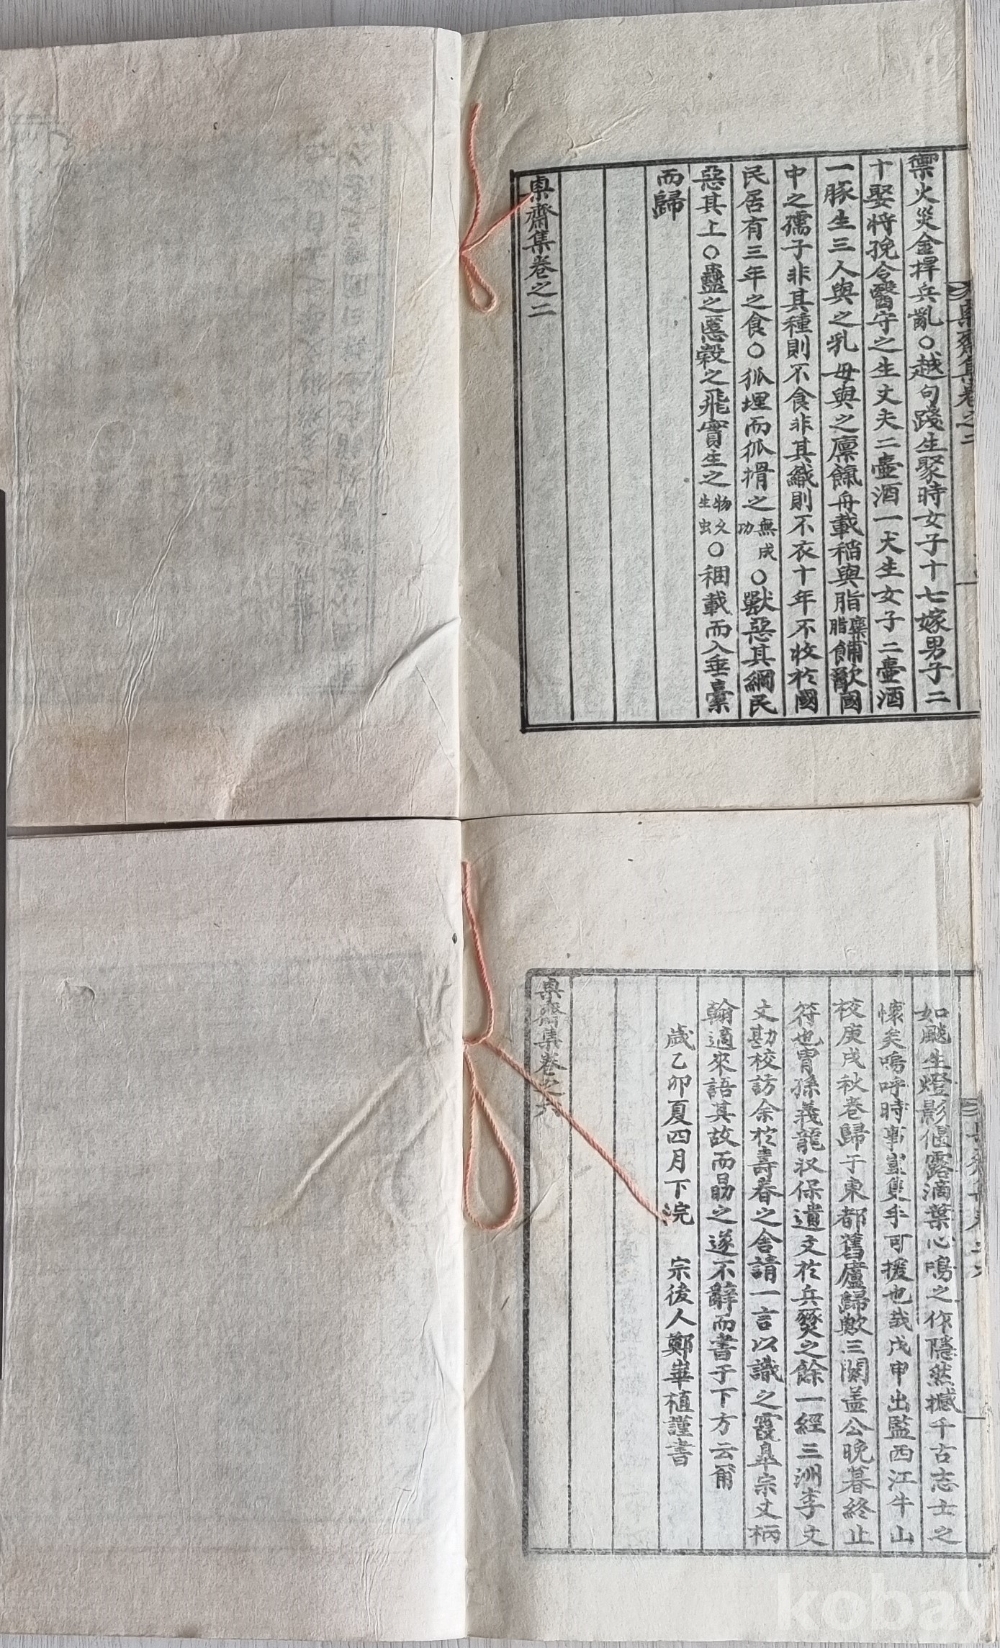 禦火災金捍兵亂○越句踐生聚時女子十七嫁男子二
十娶將挽令醫守之生丈夫二壺酒一犬生女子二壺酒
一豚生三人與之乳母與之廩餼舟載稻與脂糜脂餔歠國
中之孺子非其種則不食非其織則不衣十年不收於國
民居有三年之食○狐埋而狐搰之無成功○獸惡其網民
惡其上○蠱之慝穀之飛實生之物久生虫○稇載而入垂橐
而歸
㮚齋集卷之二
㮚齋集卷之二
如颷生燈影偃露滴葉心鳴之作隱然撼千古志士之
懷矣嗚呼時事豈隻手可援也哉戊申出監西江牛山
校庚戌秋卷歸于東都舊廬歸歟三闋盖公晩暮終止
符也胄孫義龍汊保遺文於兵燹之餘一經三洲李文
文勘校訪余於壽春之舍請一言以識之霞皐宗丈柄
翰適來語其故而勗之遂不辭而書于下方云爾
歲乙卯夏四月下浣 宗後人鄭崋植謹書
㮚齋集卷之六
kobay